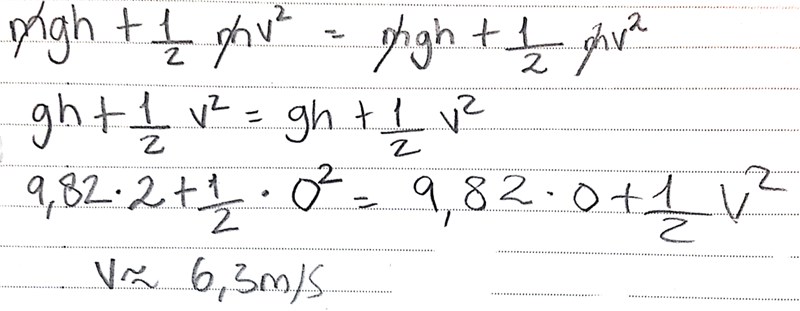 mgh + 1/2 mv² = mgh + 1/2 mv²
gh + 1/2 v² = gh + 1/2 v²
9,82 · 2 + 1/2 · 0² = 9,82 · 0 + 1/2 v²
v ≈ 6,3 m/s